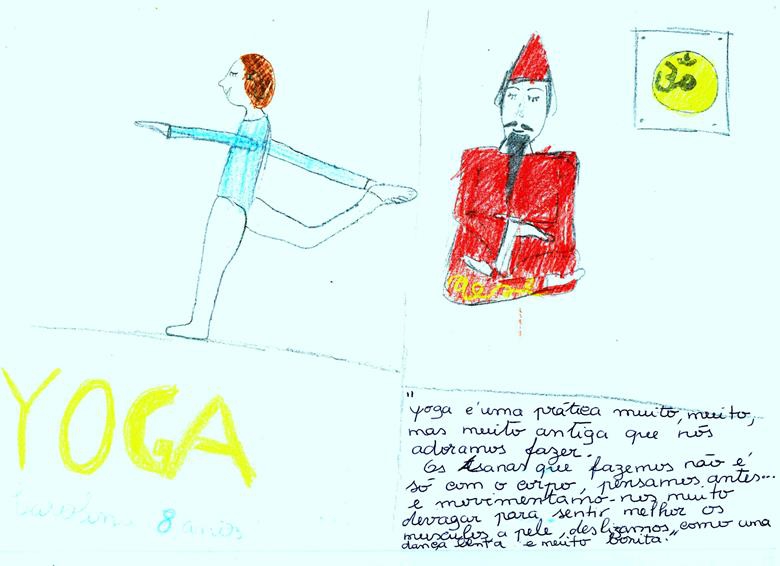 ॐ
YOGA
8 anos
"yoga é uma prática muito, muito,
mas muito antiga que nós
adoramos fazer.
Os Ásanas que fazemos não é
só com o corpo, pensamos antes...
e movimentamo-nos muito
devagar para sentir melhor os
músculos a pele, deslizamos, como uma
dança lenta e muito bonita."